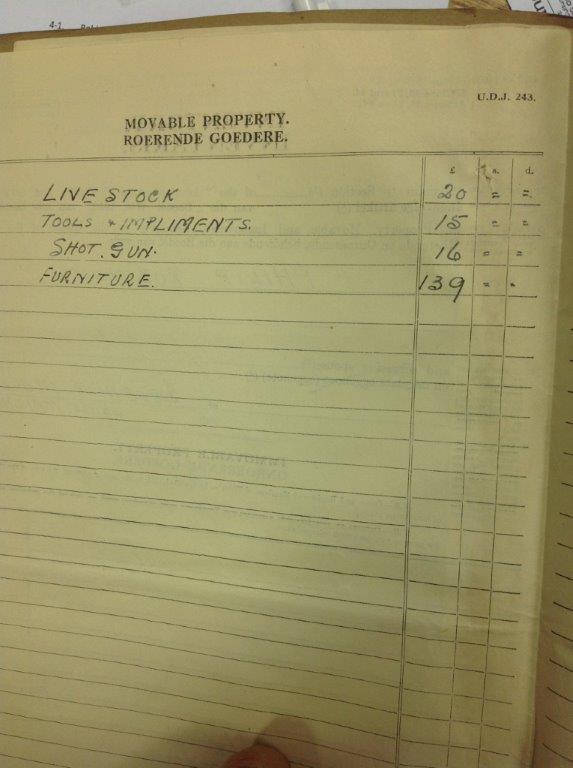 4-1
U.D.J. 243.
MOVABLE PROPERTY.
ROERENDE GOEDERE.
£ s. d.
LIVE STOCK 20 = =
TOOLS + IMPLIMENTS. 15 = =
SHOT. GUN. 16 = =
FURNITURE. 139 = =